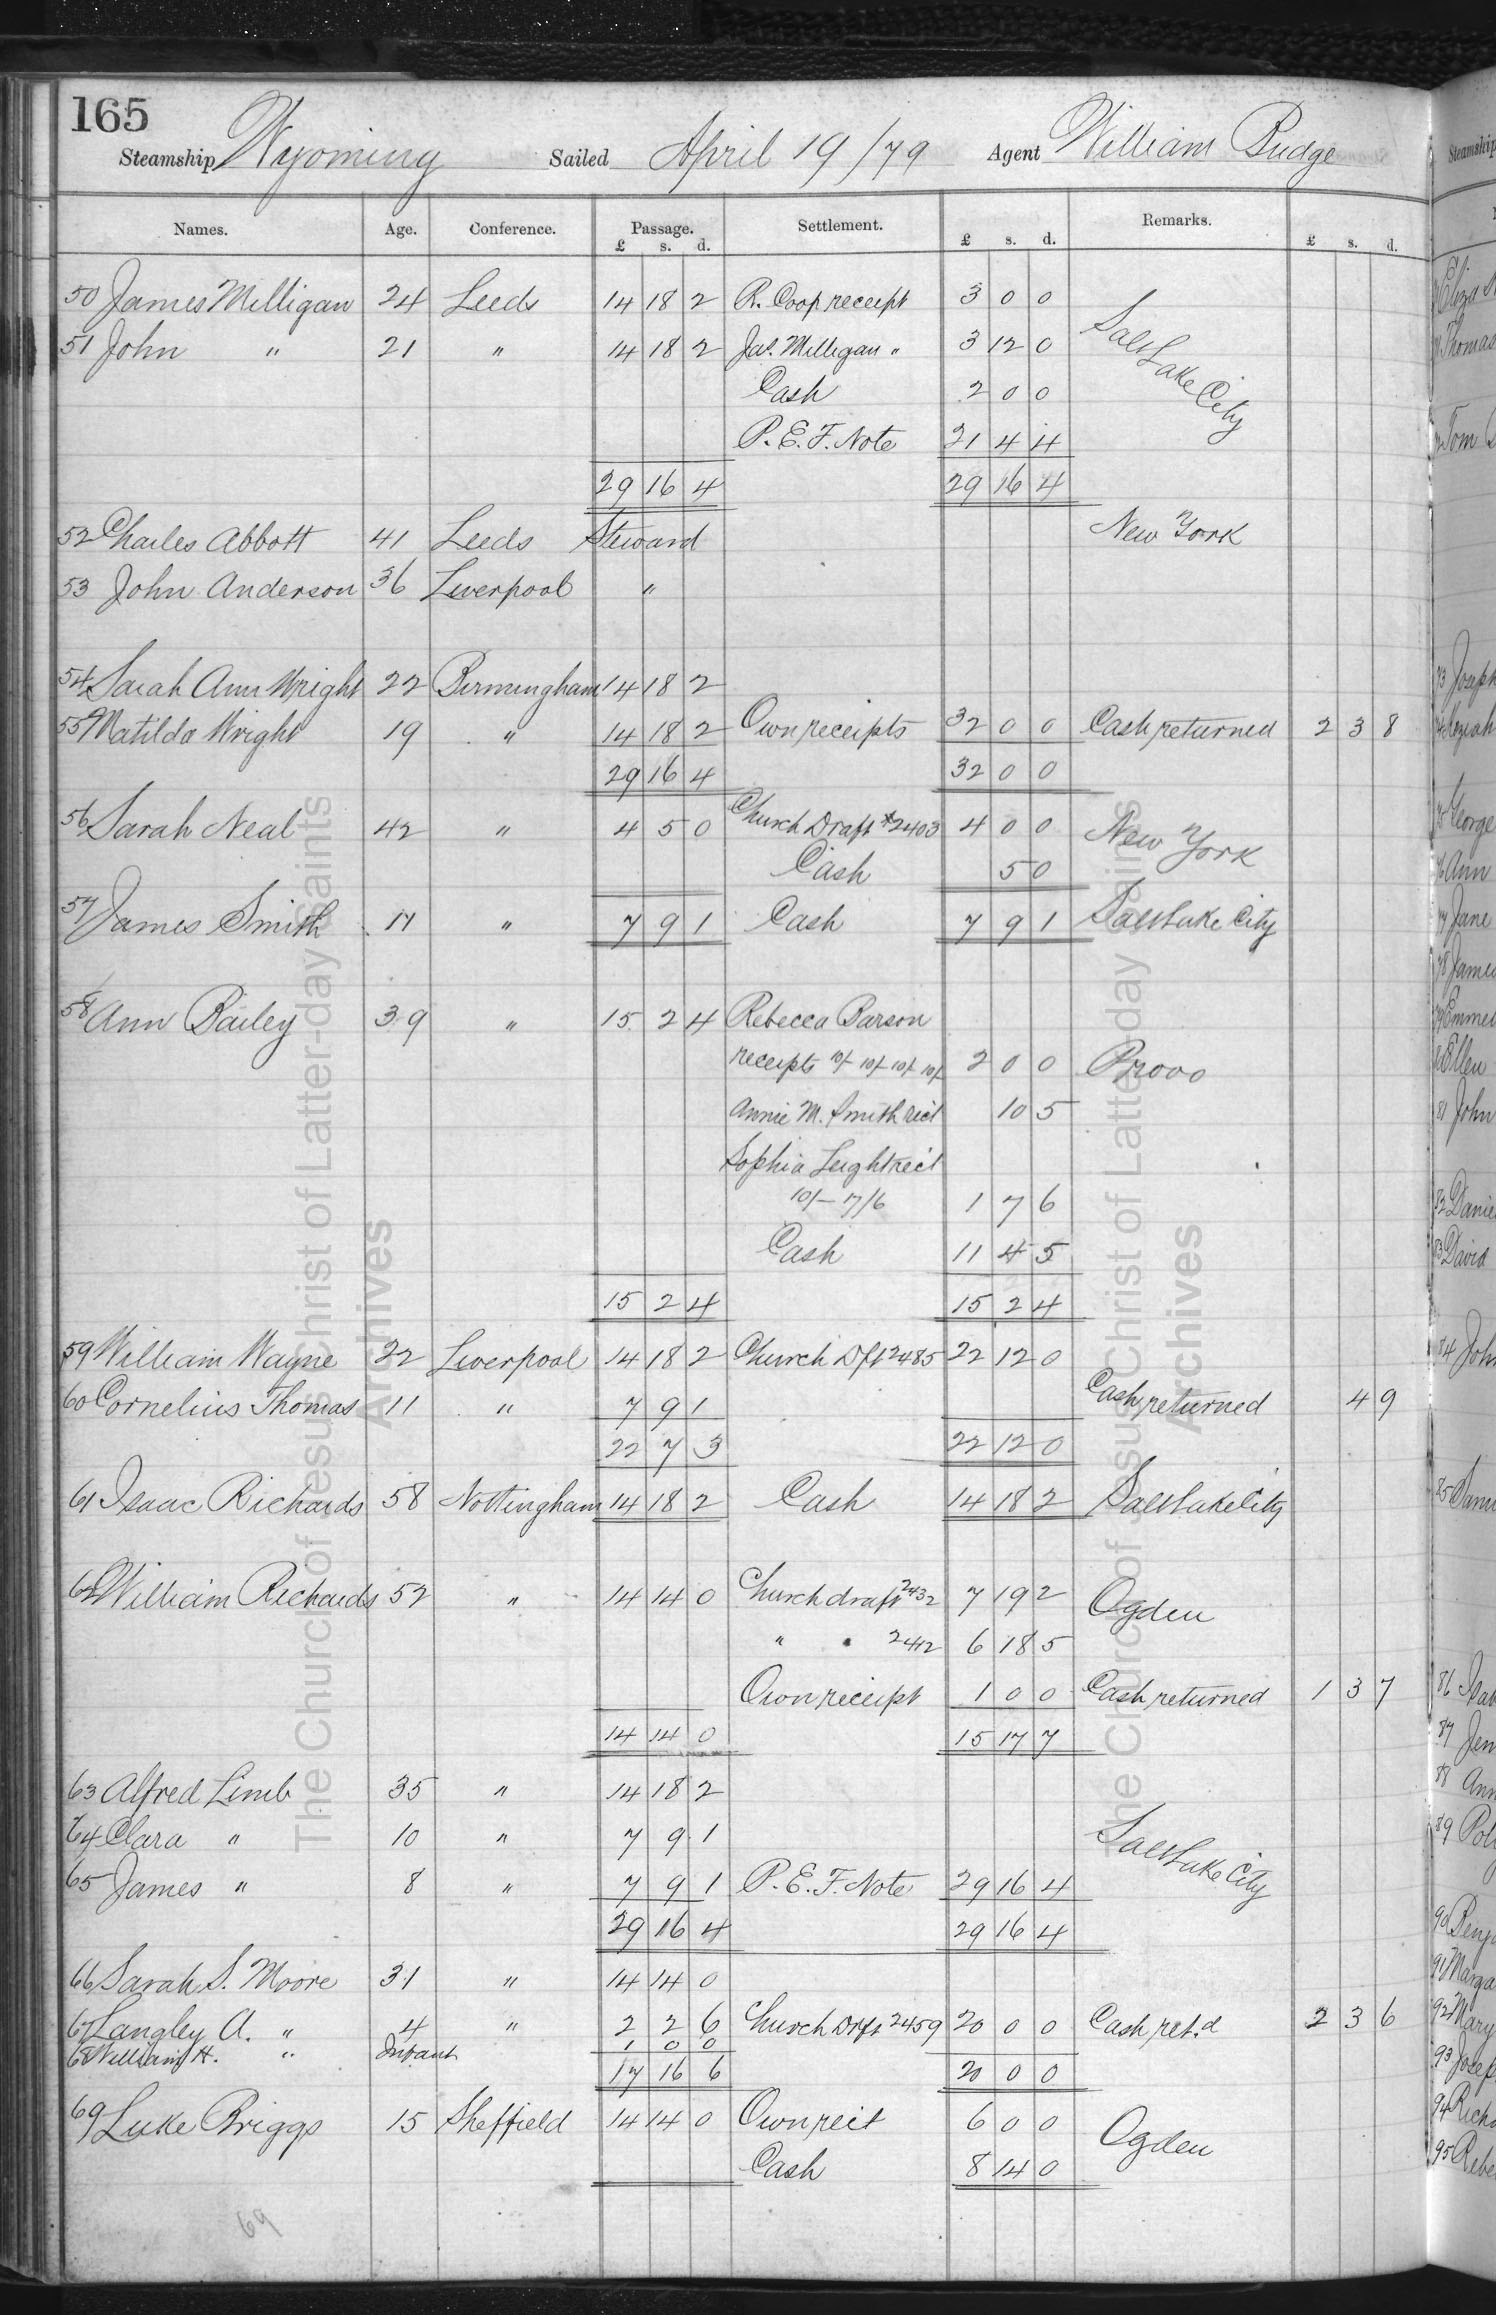 165
Steamship Wyoming Sailed April 19/79 Agent William Budge
Names. Age. Conference. Passage. Settlement. Remarks.
£ s. d. £ s. d. £ s. d.
50 James Milligan 24 Leeds 14 18 2 R. Coop receipt 3 0 0
51 John " 21 " 14 18 2 Jas. Milligan " 3 12 0 Salt Lake City
Cash 2 0 0
P. E. F. Note 21 4 4
29 16 4 29 16 4
52 Charles Abbott 41 Leeds Steward New York
53 John Anderson 36 Liverpool "
54 Sarah Ann Wright 22 Birmingham 14 18 2
55 Matilda Wright 19 " 14 18 2 Own receipts 32 0 0 Cash returned 2 3 8
29 16 4 32 0 0
56 Sarah Neal 42 " 4 5 0 Church Draft #2403 4 0 0 New York
Cash 5 0
57 James Smith 11 " 7 9 1 Cash 7 9 1 Salt Lake City
58 Ann Bailey 39 " 15 2 4 Rebecca Barson
receipts 10/- 10/- 10/- 10/- 2 0 0 Provo
Annie M. Smith rect 10 5
Sophia Leight rect
10/- 7/6 1 7 6
Cash 11 4 5
15 2 4 15 2 4
59 William Wayne 22 Liverpool 14 18 2 Church Dft 2485 22 12 0
60 Cornelius Thomas 11 " 7 9 1 Cash returned 4 9
22 7 3 22 12 0
61 Isaac Richards 58 Nottingham 14 18 2 Cash 14 18 2 Salt Lake City
62 William Richards 52 " 14 14 0 Church draft 2432 7 19 2 Ogden
" " 2412 6 18 5
Own receipt 1 0 0 Cash returned 1 3 7
14 14 0 15 17 7
63 Alfred Limb 35 " 14 18 2
64 Clara " 10 " 7 9 1 Salt Lake City
65 James " 8 " 7 9 1 P. E. F. Note 29 16 4
29 16 4 29 16 4
66 Sarah S. Moore 31 " 14 14 0
67 Langley A. " 4 " 2 2 6 Church Drft 2459 20 0 0 Cash ret.d 2 3 6
68 William H. " Infant 1 0 0
17 16 6 20 0 0
69 Luke Briggs 15 Sheffield 14 14 0 Own rect 6 0 0 Ogden
Cash 8 14 0
69
The Church of Jesus Christ of Latter-day Saints
Archives
The Church of Jesus Christ of Latter-day Saints
Archives